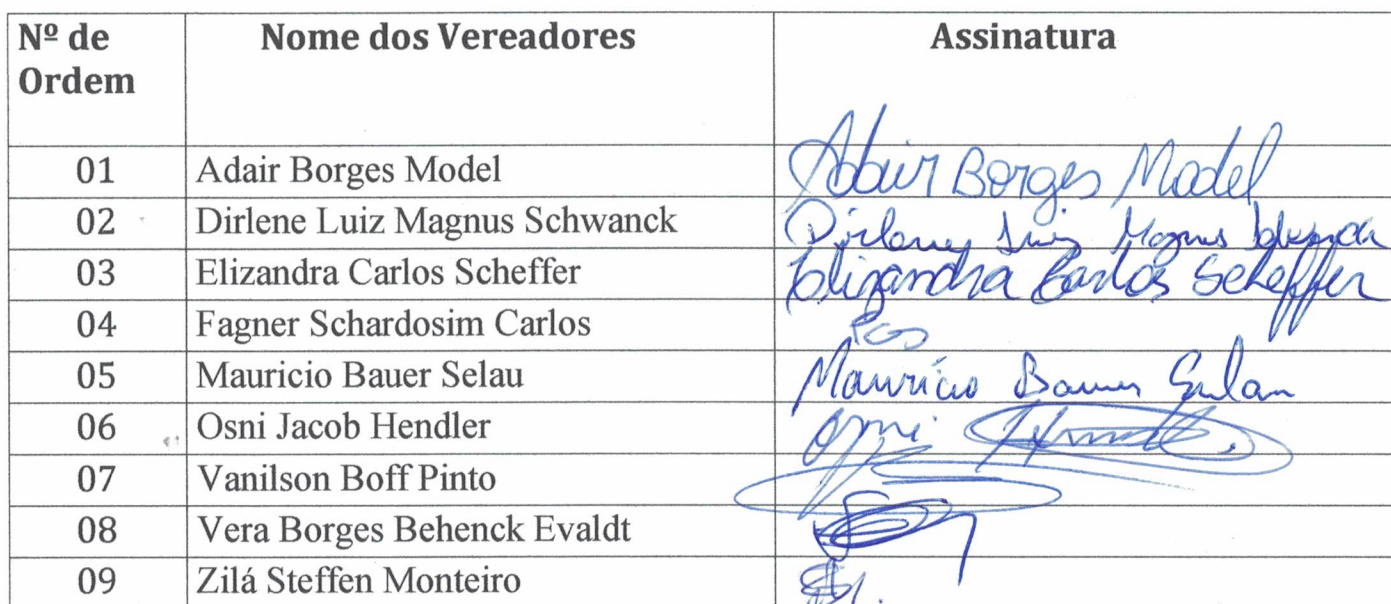 Nº de Ordem Nome dos Vereadores Assinatura
01 Adair Borges Model Adair Borges Model
02 Dirlene Luiz Magnus Schwanck Dirlene Luiz Magnus
03 Elizandra Carlos Scheffer Elizandra Carlos Scheffer
04 Fagner Schardosim Carlos
05 Mauricio Bauer Selau Maurício Bauer Selau
06 Osni Jacob Hendler Osni
07 Vanilson Boff Pinto
08 Vera Borges Behenck Evaldt
09 Zilá Steffen Monteiro